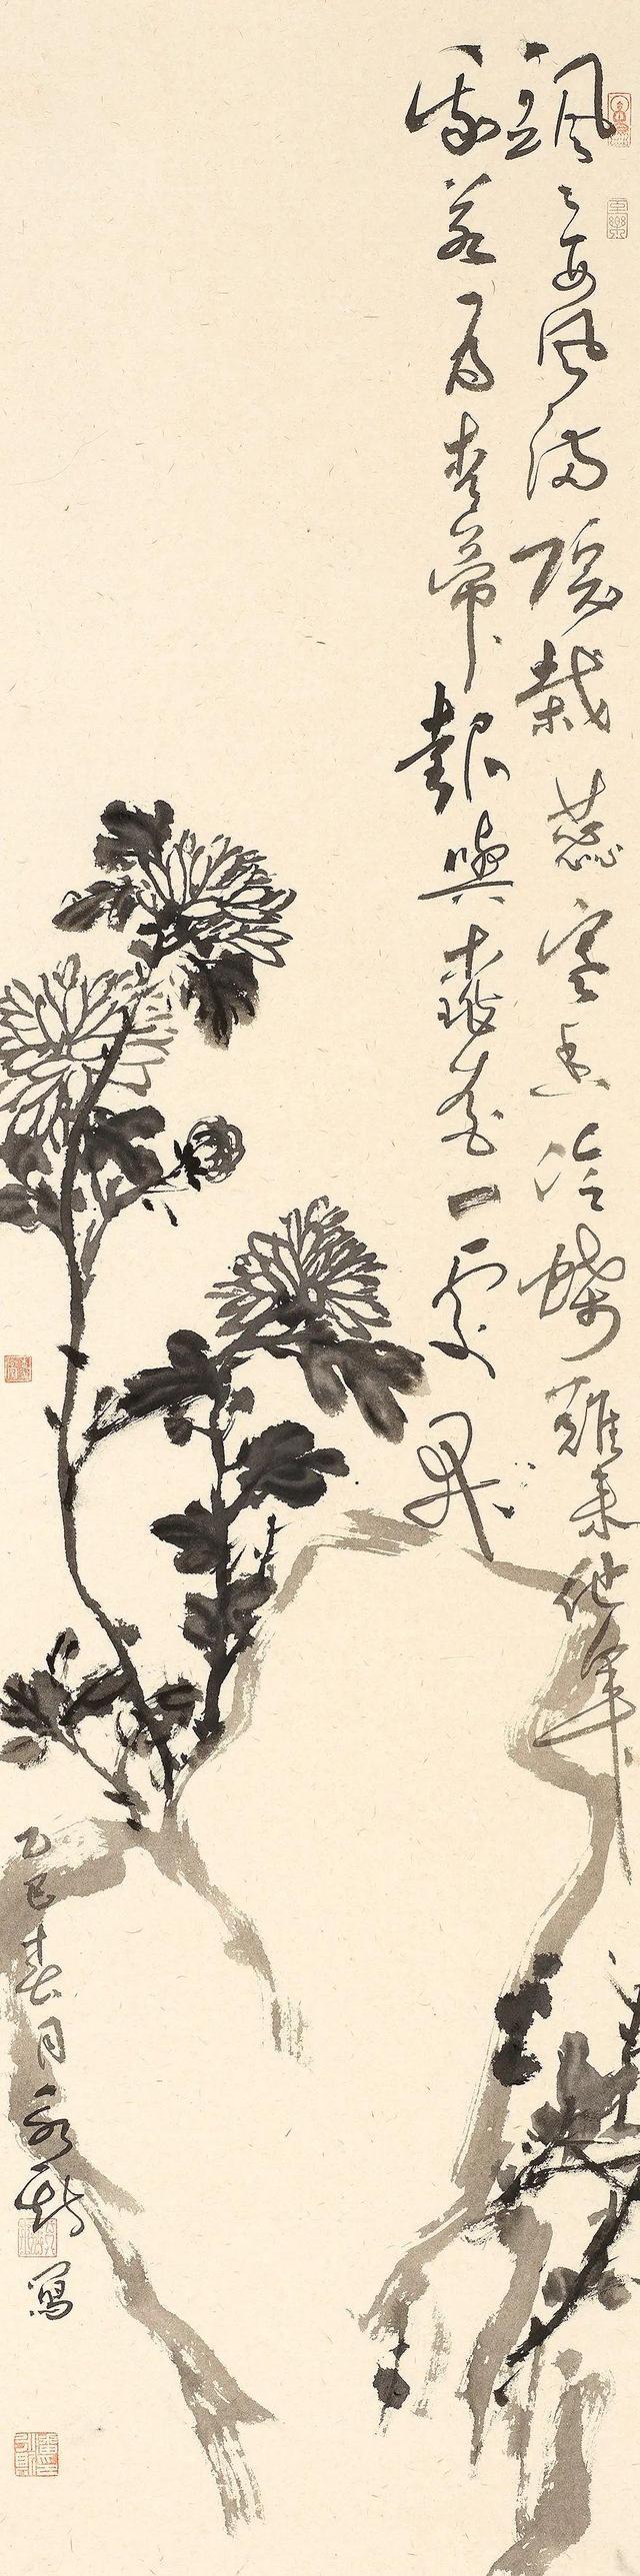 颯〻西風滿院栽蕊寒香冷蝶難來他年
我若為青帝報與桃花一處開
乙巳春月永寫
至樂